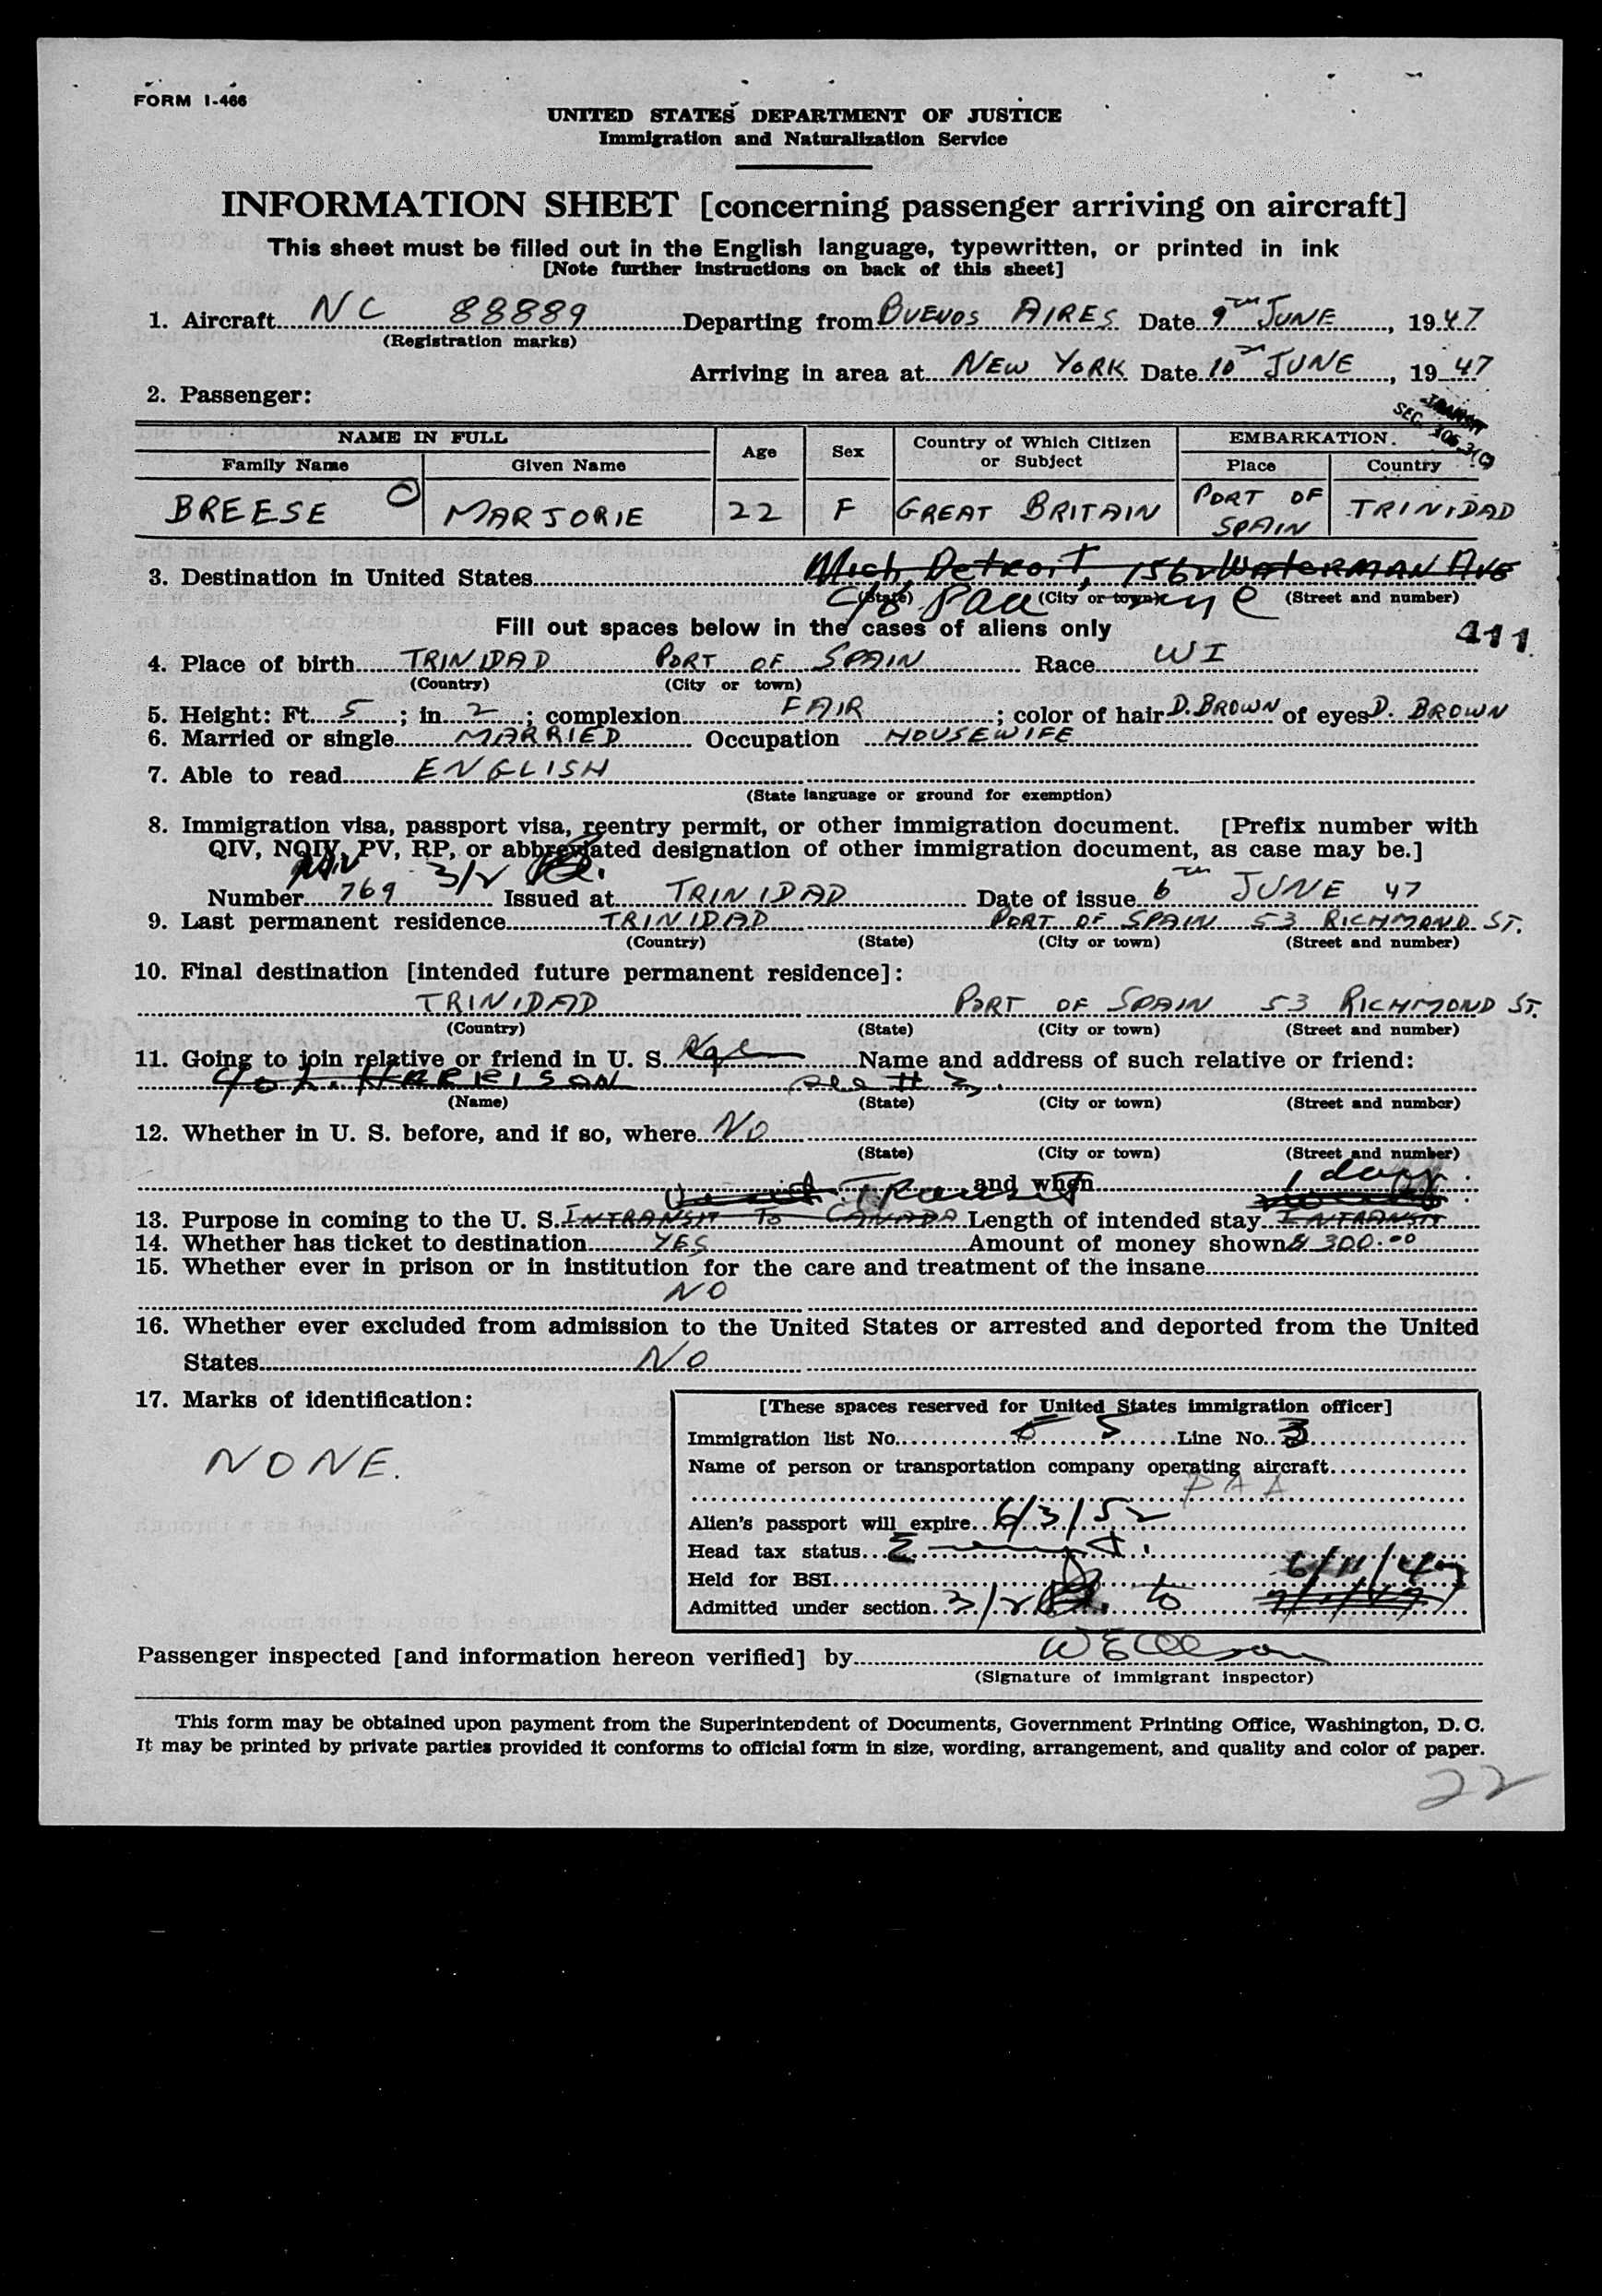 FORM I-466
UNITED STATES DEPARTMENT OF JUSTICE
Immigration and Naturalization Service
INFORMATION SHEET [concerning passenger arriving on aircraft]
This sheet must be filled out in the English language, typewritten, or printed in ink
[Note further instructions on back of this sheet]
1. Aircraft NC 88889 Departing from BUENOS AIRES Date 9TH JUNE, 1947
(Registration marks)
Arriving in area at NEW YORK Date 10TH JUNE, 1947
2. Passenger:
TRANSIT
SEC.
NAME IN FULL Age Sex Country of Which Citizen or Subject EMBARKATION
Family Name Given Name Place Country
BREESE MARJORIE 22 F GREAT BRITAIN PORT OF SPAIN TRINIDAD
3. Destination in United States Mich, Detroit, 1562 WATERMAN AVE
(State) (City or town) (Street and number)
c/o Paa nyc
Fill out spaces below in the cases of aliens only
411
4. Place of birth TRINIDAD PORT OF SPAIN Race WI
(Country) (City or town)
5. Height: Ft. 5; in 2; complexion FAIR; color of hair D. BROWN of eyes D. BROWN
6. Married or single MARRIED Occupation HOUSEWIFE
7. Able to read ENGLISH
(State language or ground for exemption)
8. Immigration visa, passport visa, reentry permit, or other immigration document. [Prefix number with
QIV, NQIV, PV, RP, or abbreviated designation of other immigration document, as case may be.]
3/2
Number 769 Issued at TRINIDAD Date of issue 6TH JUNE 47
9. Last permanent residence TRINIDAD PORT OF SPAIN 53 RICHMOND ST.
(Country) (State) (City or town) (Street and number)
10. Final destination [intended future permanent residence]:
TRINIDAD PORT OF SPAIN 53 RICHMOND ST.
(Country) (State) (City or town) (Street and number)
11. Going to join relative or friend in U. S. Name and address of such relative or friend:
c/o L. HARRISON see # 3.
(Name) (State) (City or town) (Street and number)
12. Whether in U. S. before, and if so, where NO
(State) (City or town) (Street and number)
and when
Transit 1 day
13. Purpose in coming to the U. S. INTRANSIT TO CANADA Length of intended stay INTRANSIT
14. Whether has ticket to destination YES Amount of money shown $ 300.00
15. Whether ever in prison or in institution for the care and treatment of the insane
NO
16. Whether ever excluded from admission to the United States or arrested and deported from the United
States NO
17. Marks of identification:
NONE.
[These spaces reserved for United States immigration officer]
Immigration list No. 5 Line No. 3
Name of person or transportation company operating aircraft
PAA
Alien's passport will expire 6/3/52
Head tax status
Held for BSI 6/11/47
Admitted under section 3/2 to
Passenger inspected [and information hereon verified] by
(Signature of immigrant inspector)
This form may be obtained upon payment from the Superintendent of Documents, Government Printing Office, Washington, D. C.
It may be printed by private parties provided it conforms to official form in size, wording, arrangement, and quality and color of paper.
22